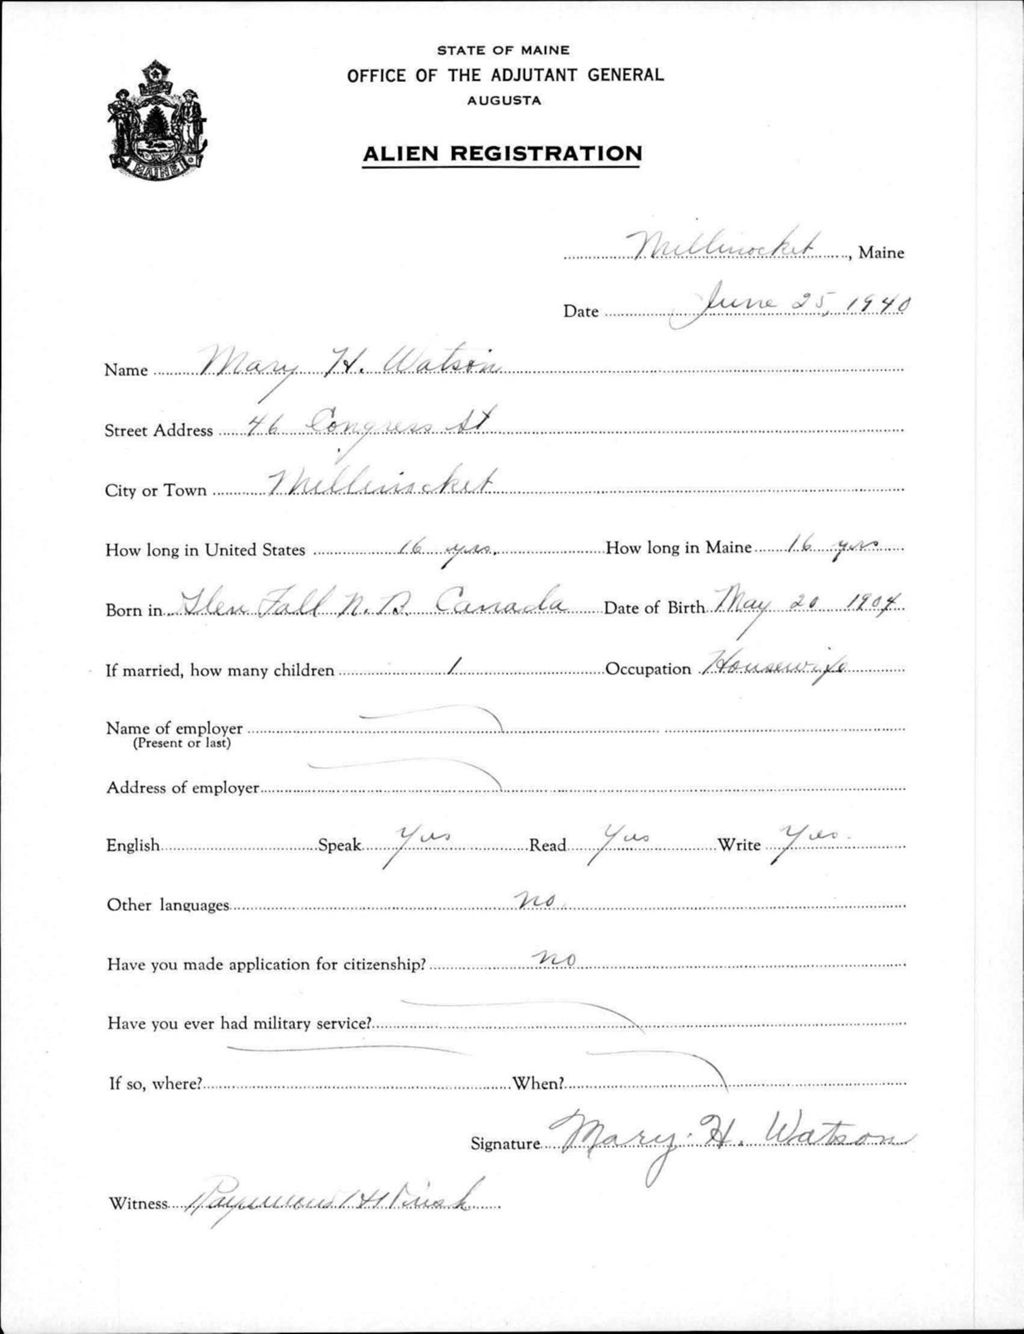 STATE OF MAINE
OFFICE OF THE ADJUTANT GENERAL
AUGUSTA
ALIEN REGISTRATION
MAINE
Millinocket, Maine
Date June 25, 1940
Name Mary H. Watson
Street Address 46 Congress St
City or Town Millinocket
How long in United States 16 yrs. How long in Maine 16 yrs
Born in Glen Fall N.B. Canada Date of Birth May 20 1904
If married, how many children 1 Occupation Housewife
Name of employer
(Present or last)
Address of employer
English Speak Yes Read Yes Write Yes
Other languages no
Have you made application for citizenship? no
Have you ever had military service?
If so, where? When?
Signature Mary H. Watson
Witness Raymond H